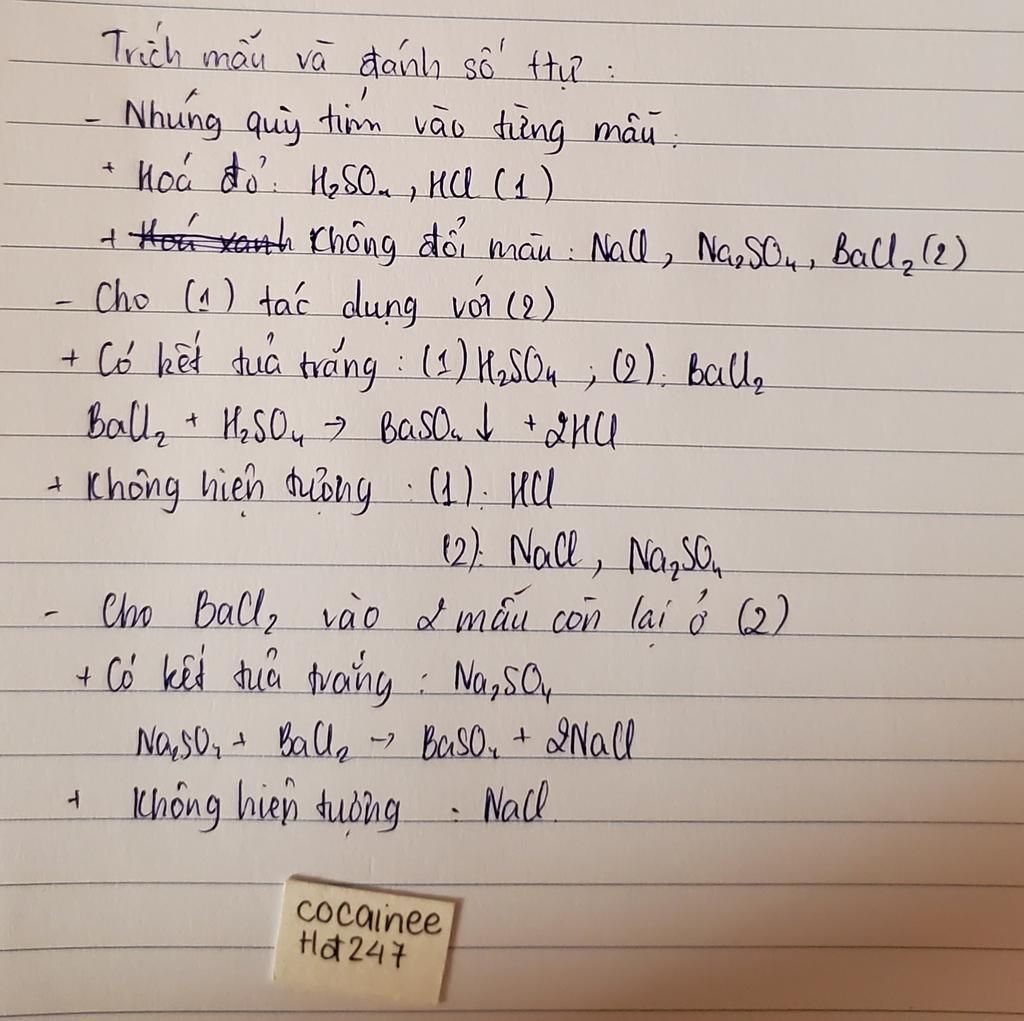 Trích mẫu và đánh số ttự :
- Nhúng quỳ tím vào từng mẫu.
+ Hoá đỏ: H₂SO₄, HCl (1)
+ Hoá xanh Không đổi màu : NaCl, Na₂SO₄, BaCl₂ (2)
- Cho (1) tác dụng với (2)
+ Có kết tủa trắng : (1) H₂SO₄ ; (2): BaCl₂
BaCl₂ + H₂SO₄ → BaSO₄ ↓ + 2HCl
+ Không hiện tượng : (1): HCl
(2): NaCl, Na₂SO₄
- Cho BaCl₂ vào 2 mẫu còn lại ở (2)
+ Có kết tủa trắng : Na₂SO₄
Na₂SO₄ + BaCl₂ → BaSO₄ + 2NaCl
+ Không hiện tượng : NaCl.
cocainee
Hot247